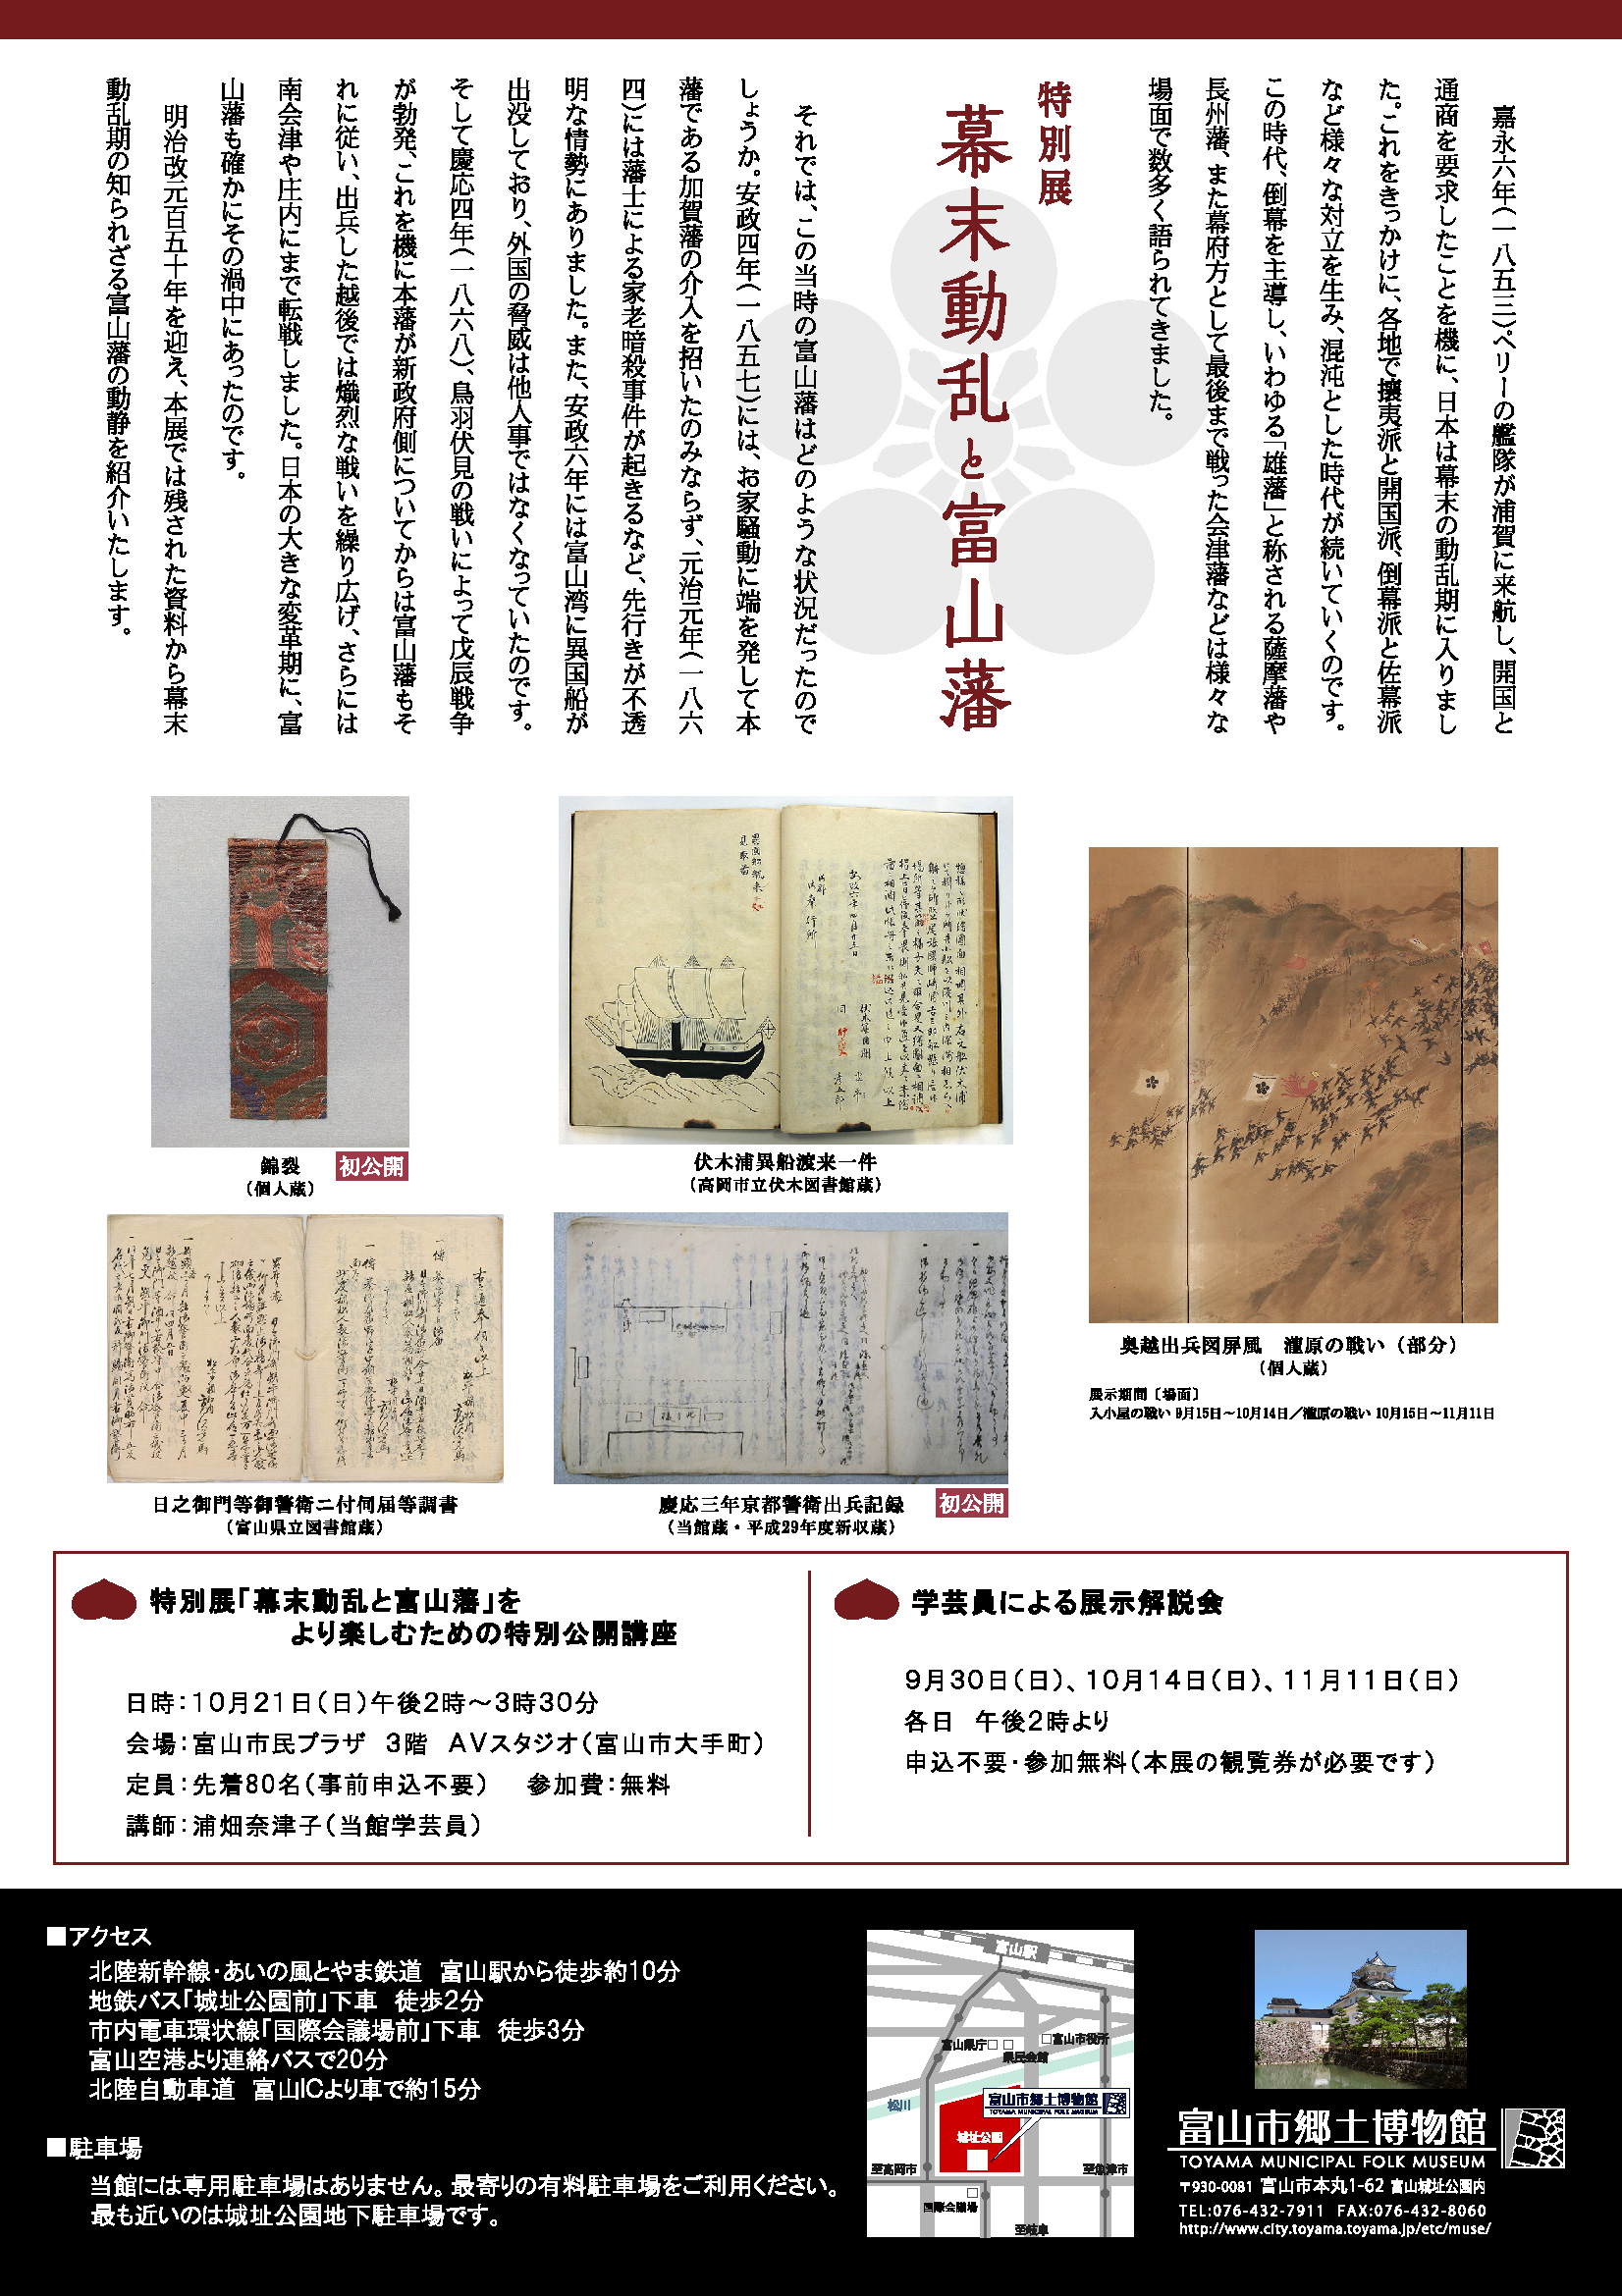 嘉永六年(一八五三)ペリーの艦隊が浦賀に来航し、開国と
通商を要求したことを機に、日本は幕末の動乱期に入りまし
た。これをきっかけに、各地で攘夷派と開国派、倒幕派と佐幕派
など様々な対立を生み、混沌とした時代が続いていくのです。
この時代、倒幕を主導し、いわゆる「雄藩」と称される薩摩藩や
長州藩、また幕府方として最後まで戦った会津藩などは様々な
場面で数多く語られてきました。
特別展
幕末動乱と富山藩
それでは、この当時の富山藩はどのような状況だったので
しょうか。安政四年(一八五七)には、お家騒動に端を発して本
藩である加賀藩の介入を招いたのみならず、元治元年(一八六
四)には藩士による家老暗殺事件が起きるなど、先行きが不透
明な情勢にありました。また、安政六年には富山湾に異国船が
出没しており、外国の脅威は他人事ではなくなっていたのです。
そして慶応四年(一八六八)、鳥羽伏見の戦いによって戊辰戦争
が勃発、これを機に本藩が新政府側についてからは富山藩もそ
れに従い、出兵した越後では熾烈な戦いを繰り広げ、さらには
南会津や庄内にまで転戦しました。日本の大きな変革期に、富
山藩も確かにその渦中にあったのです。
明治改元百五十年を迎え、本展では残された資料から幕末
動乱期の知られざる富山藩の動静を紹介いたします。
錦裂
初公開
(個人蔵)
伏木浦異船渡来一件
(高岡市立伏木図書館蔵)
奥越出兵図屏風 瀧原の戦い(部分)
(個人蔵)
展示期間〔場面〕
入小屋の戦い 9月15日~10月14日/瀧原の戦い 10月15日~11月11日
日之御門等御警衛ニ付伺届等調書
(富山県立図書館蔵)
慶応三年京都警衛出兵記録
初公開
(当館蔵・平成29年度新収蔵)
特別展「幕末動乱と富山藩」を
より楽しむための特別公開講座
日時:10月21日(日)午後2時~3時30分
会場:富山市民プラザ 3階 AVスタジオ(富山市大手町)
定員:先着80名(事前申込不要) 参加費:無料
講師:浦畑奈津子(当館学芸員)
学芸員による展示解説会
9月30日(日)、10月14日(日)、11月11日(日)
各日 午後2時より
申込不要・参加無料(本展の観覧券が必要です)
■アクセス
北陸新幹線・あいの風とやま鉄道 富山駅から徒歩約10分
地鉄バス「城址公園前」下車 徒歩2分
市内電車環状線「国際会議場前」下車 徒歩3分
富山空港より連絡バスで20分
北陸自動車道 富山ICより車で約15分
■駐車場
当館には専用駐車場はありません。最寄りの有料駐車場をご利用ください。
最も近いのは城址公園地下駐車場です。
富山駅
富山県庁□
□
県民会館
□富山市役所
松川
富山市郷土博物館
TOYAMA MUNICIPAL FOLK MUSEUM
城址公園
至高岡市
至魚津市
国際会議場
至岐阜
富山市郷土博物館
TOYAMA MUNICIPAL FOLK MUSEUM
〒930-0081 富山市本丸1-62 富山城址公園内
TEL:076-432-7911 FAX:076-432-8060
http://www.city.toyama.toyama.jp/etc/muse/